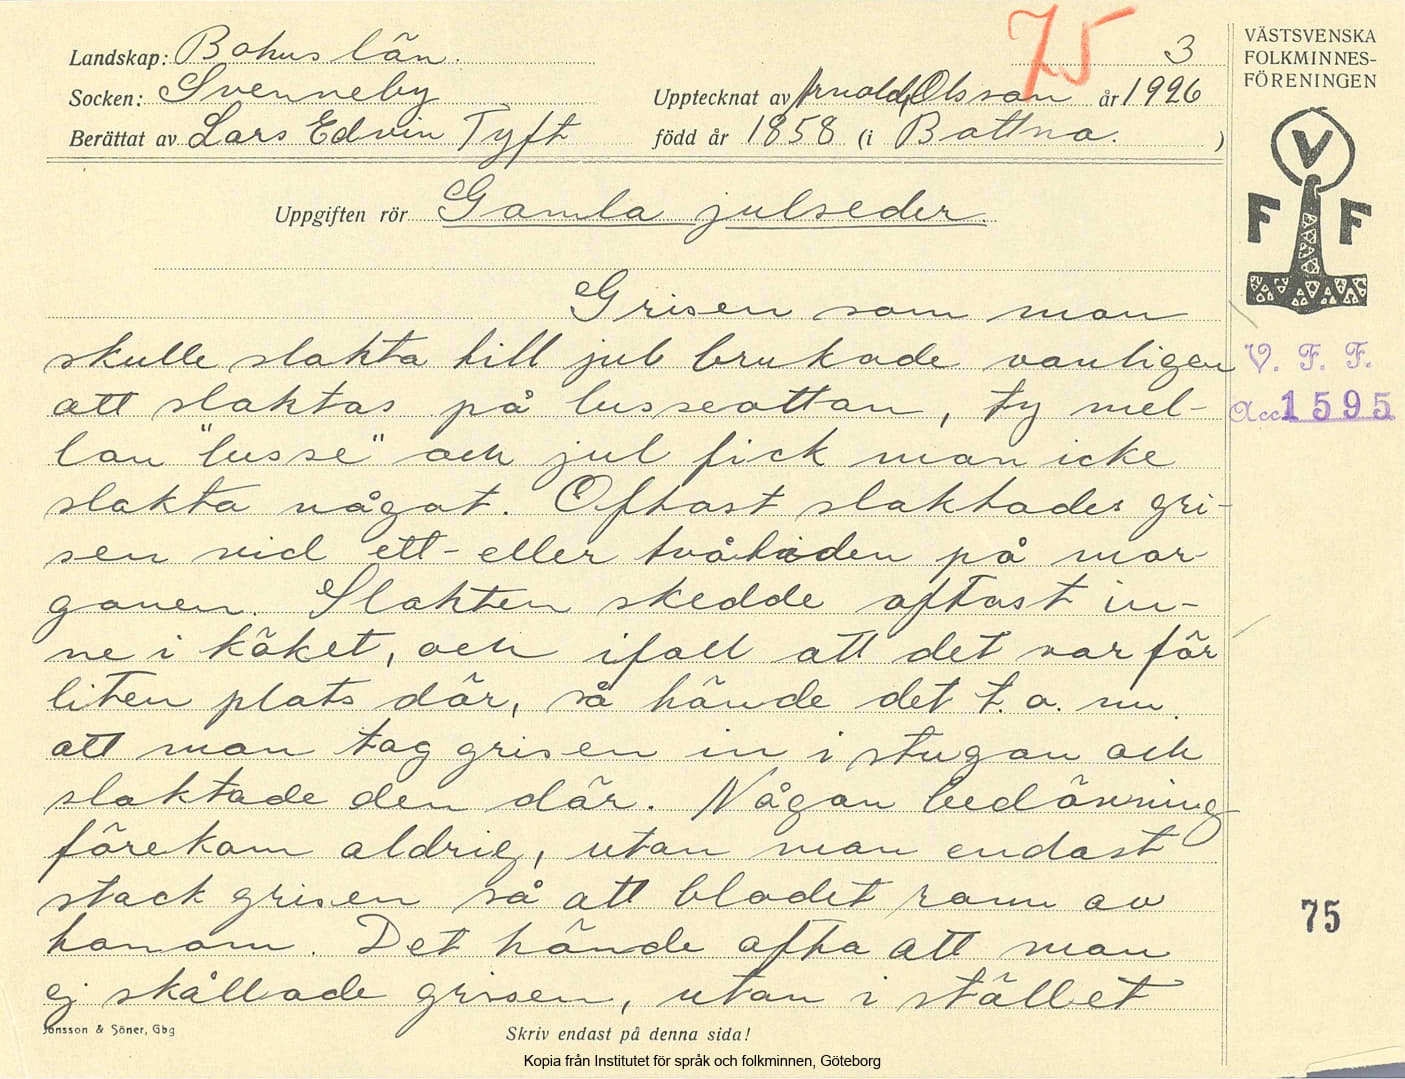 Landskap: Bohuslän.
75
3
VÄSTSVENSKA
FOLKMINNES-
FÖRENINGEN
Socken: Svenneby
Upptecknat av Arnold Olsson år 1926
Berättat av Lars Edvin Tyft
född år 1858 (i Bottna. )
Uppgiften rör Gamla julseder
V
F F
Grisen som man
skulle slakta till jul brukade vanligen
att slaktas på lusseottan, ty mel-
lan "lusse" och jul fick man icke
slakta något. Oftast slaktades gri-
sen vid ett- eller tvåtiden på mor-
gonen. Slakten skedde oftast in-
ne i köket, och ifall att det var för
liten plats där, så hände det t.o.m.
att man tog grisen in i stugan och
slaktade den där. Någon bedövning
förekom aldrig, utan man endast
stack grisen så att blodet rann av
honom. Det hände ofta att man
ej skållade grisen, utan i stället
V. F. F.
Acc. 1595
75
Jonsson & Söner, Gbg
Skriv endast på denna sida!
Kopia från Institutet för språk och folkminnen, Göteborg